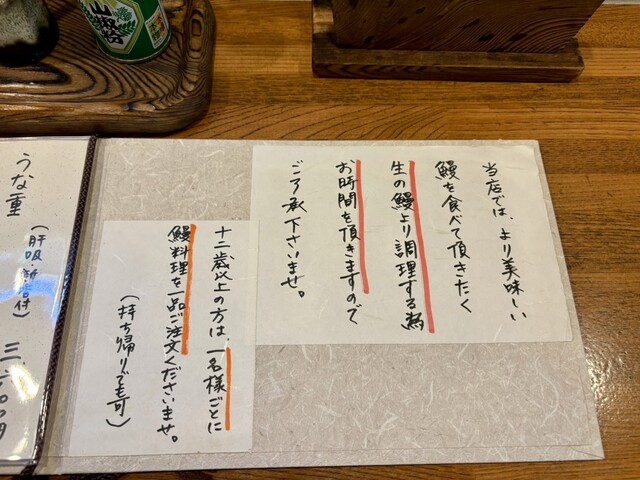 山椒粉
当店では、より美味しい
鰻を食べて頂きたく
生の鰻より調理する為
お時間を頂きますので
ご了承下さいませ。
十二歳以上の方は、一名様ごとに
鰻料理を一品ご注文くださいませ。
（持ち帰りでも可）
うな重
（肝吸・新香付）